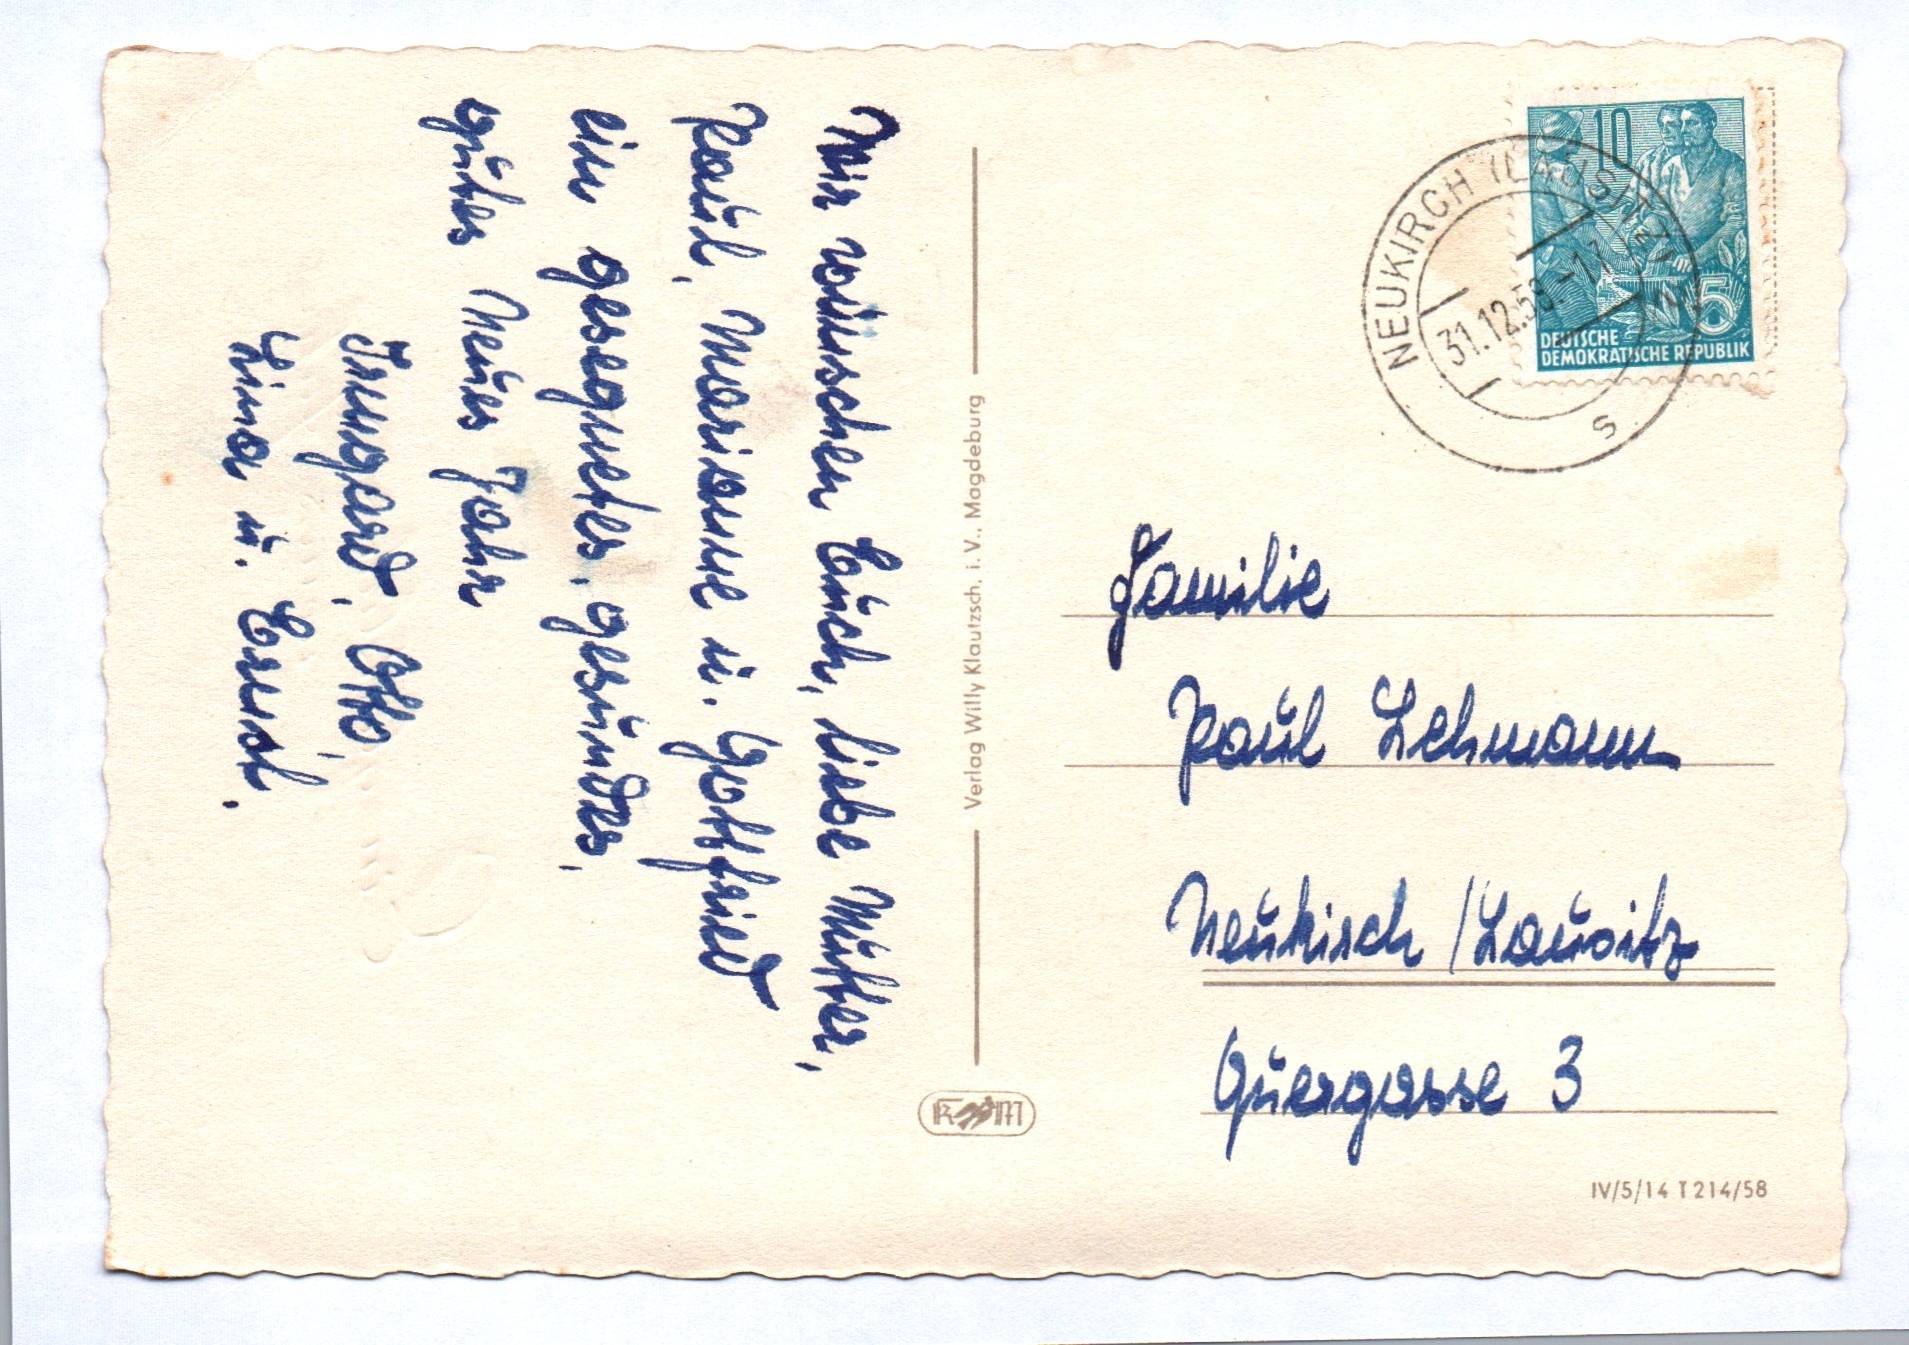 Wir wünschen Euch, liebe Mutter,
Paul, Marianne u. Gottfried
ein gesegnetes, gesundes,
gutes Neues Jahr
Irmgard, Otto,
Lina u. Ernst.
Verlag Willy Klautzsch, i. V., Magdeburg
KWM
NEUKIRCH (LAUSITZ)
31.12.58.-17
s
10
5
DEUTSCHE
DEMOKRATISCHE REPUBLIK
Familie
Paul Lehmann
Neukirch / Lausitz
Quergasse 3
IV/5/14 T 214/58